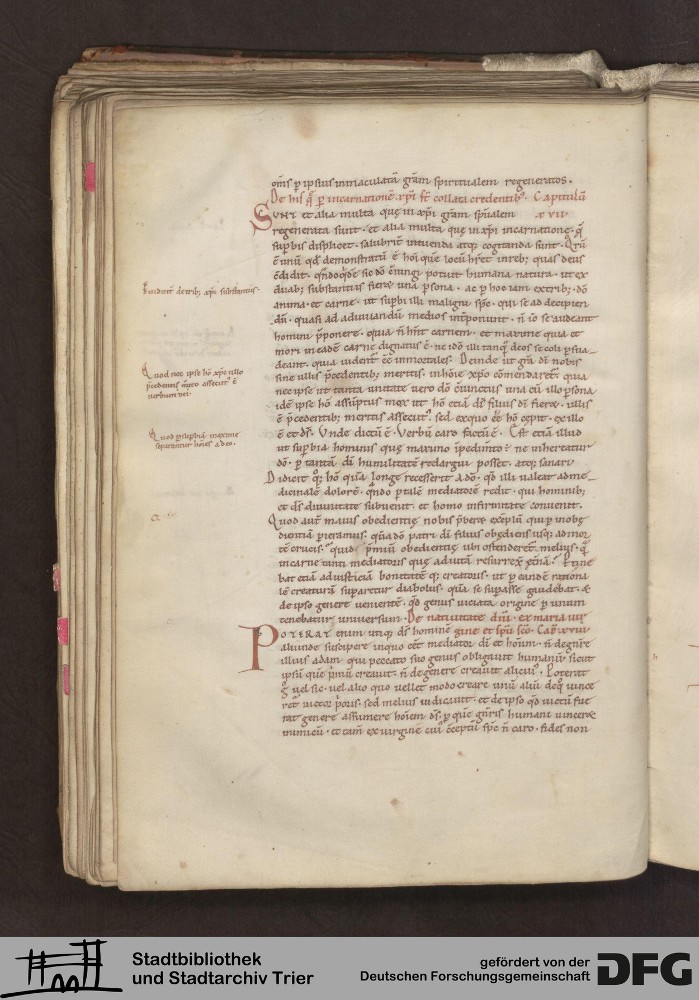 om̄s ꝑ ipsius inmaculatā grām spiritualem regeneratos.
De his q̄ ꝑ incarnationē xp̄i sʼt collata credentibꝰ. Capitulū
xvii
Sunt et alia multa quę in xp̄i grām sp̄ualem
regenerata sunt. et alia multa quę in xp̄i incarnatione. q̄
supbis displicet. salubrit intuenda atq; cogitanda sunt. Qrū
ē unū qd demonstratū ē hoi que locū hret in reb; quas deus
cōdidit. qn̄doqdē sic dō cōiungi potuit humana natura. ut ex
duab; substantiis fieret una ꝑsona. ac ꝑ hoc iam ex trib; dō
anima. et carne. ut supbi illi maligni sps. qui se ad decipien
dū. quasi ad adiuuandū medios int̄ponunt. n̄ iō se audeant
homini p̄ponere. quia n̄ hn̄t carnem. et maxime quia et
mori in eadē carne dignatus ē. ne idō illi tanq̄ deos se coli ꝑsua_
deant. quia uident̄ ēē inmortales. Deinde ut grā di nobis
sine ullis p̄cedentib; meritis. in hoīe xp̄o cōmendaret̄. quia
nec ipse ut tanta unitate uero dō cōiunctus una cū illo ꝑsona
idē ipse hō assūptus
ē p̄cedentib; meritis assecutꝰ. sed ex quo ēē hō cępit. ex illo
ē et ds. Unde dictū ē. Verbū caro factū ē. Est etiā illud
ut supbia hominis quę maximo īpedimto ē ne inhereatur
dō. ꝑ tantā di humilitatē redargui posset. atq; sanari
Didicit q; hō quā longe recesserit a dō. qd illi ualeat ad me_
dicinalē dolorē. qn̄do ꝑ talē mediatorē redit. qui hominib;
et ds diuinitate subuenit. et homo infirmitate conuenit.
Quod aut̄ maius obedientię nobis p̄beret exēplū qui ꝑ inobę
dientiā perieramus. quā dō patri di filius obędiens usq; ad mor
tē crucis. quid p̄miū obedientię ubi ostenderet̄ melius. q̄
in carne tanti mediatoris quę ad uitā resurrex̄ et̄nā. Ptine
bat etiā ad iusticiam bonitatēq; creatoris. ut ꝑ eandē rationa
lē creaturā supararetur diabolus. quā se supasse gaudebat. &
de ipso genere uenientē. qd genus uiciata origine ꝑ unum
tenebatur uniuersum. De natiuitate dn̄i. ex maria uir
gine et spū sc̄o. Cap xviii
Poterat enim utiq; ds hominē
aliunde suscipere in quo ēēt mediator di et hoīnū. n̄ de genere
illius adam. qui peccato suo genus obligauit humanū. sicut
ipsū quē primū creauit. n̄ de genere creauit alicuiꝰ. Poterat
g̊ uel sic. uel alio quo uellet modo creare unū aliū de q̊ uince
ret̄ uictor p̄oris. sed melius iudicauit. et de ipso qd uictū fue
rat genere assumere hoīem ds. ꝑ quē gn̄ris humani uinceret
inimicū. et tam̄ ex uirgine cuiꝰ cceptū sp̄c n̄ caro. fides non
Euident̄ de trib; xp̄i substantiis.
Quod nec ipse hō xp̄c ullo
p̄cedentis mērito assecutꝰ ē
uerbum dei.
Quod p supbiā maxime
separantur hoīes a deo.
Stadtbibliothek
und Stadtarchiv Trier
gefördert von der
Deutschen Forschungsgemeinschaft
DFG